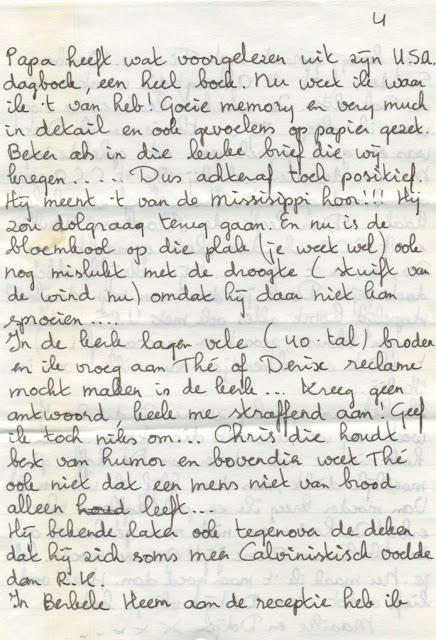 4
Papa heeft wat voorgelezen uit zijn U.S.A.
dagboek, een heel boek. Nu weet ik waar
ik 't van heb! Goeie memory en very much
in detail en ook gevoelens op papier gezet.
Beter als in die leuke brief die wij
kregen..... Dus achteraf toch positief.
Hij meent 't van de Mississippi hoor!!! Hij
zou dolgraag terug gaan. En nu is de
bloemkool op die plak (je weet wel) ook
nog mislukt met de droogte (stuift van
de wind nu) omdat hij daar niet kan
sproeien.....
In de kerk lagen vele (40.tal) broden
en ik vroeg aan Thé of Derix reclame
mocht maken is de kerk... Kreeg geen
antwoord, keek me straffend aan! Geef
ik toch niks om... Chris die houdt
best van humor en bovendien weet Thé
ook niet dat een mens niet van brood
alleen leeft...
Hij bekende later ook tegenover de deken
dat hij zich soms meer Calvinistisch voelde
dan R.K.
In Berkele Heem aan de receptie heb ik